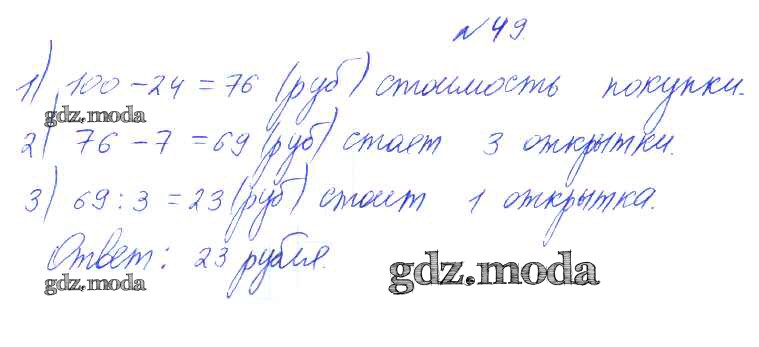 № 49.
1) 100 - 24 = 76 (руб) стоимость покупки.
gdz.moda
2) 76 - 7 = 69 (руб) стоет 3 открытки.
3) 69 : 3 = 23 (руб) стоит 1 открытка.
Ответ: 23 рубля.
gdz.moda
gdz.moda